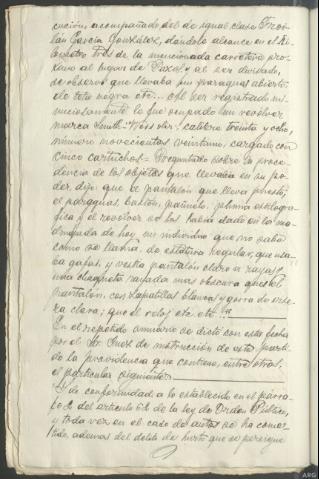 cución, acompañado del de igual clase Froi-
lán García González, dándole alcance en el Ki-
lómetro tres de la mencionada carretera pró-
ximo al lugar de y al ser divisado,
se observó que llevaba un paraguas abierto,
de tela negra etc... Al ser registrado mi-
nuciosamente le fue ocupado un revólver
marca Smith-Wesson, calibre treinta y ocho,
número novecientos veintiuno, cargado con
cinco cartuchos = Preguntado sobre la proce-
dencia de los objetos que llevaba en su po-
der, dijo que el pantalón que lleva puesto,
el paraguas, bastón, pañuelo, pluma estilográ-
fica y el revólver se los había dado en la ma-
drugada de hoy un individuo que no sabe
como se llama, de estatura regular, que usa-
ba gafas, y vestía pantalón claro a rayas,
una chaqueta rayada mas obscura que el
pantalón, con zapatillas blancas y gorra de vise-
ra clara; que el reloj etc. etc.
En el repetido sumario se dictó con esta fecha
por el Sr. Juez de instrucción de este parti-
do la providencia que contiene, entre otras,
el particular siguiente:
Y de conformidad a lo establecido en el párra-
fo 2 del artículo 62 de la ley de Orden Público,
y toda vez en el caso de autos se ha come-
tido, ademas del delito de hurto que se persigue
ARG